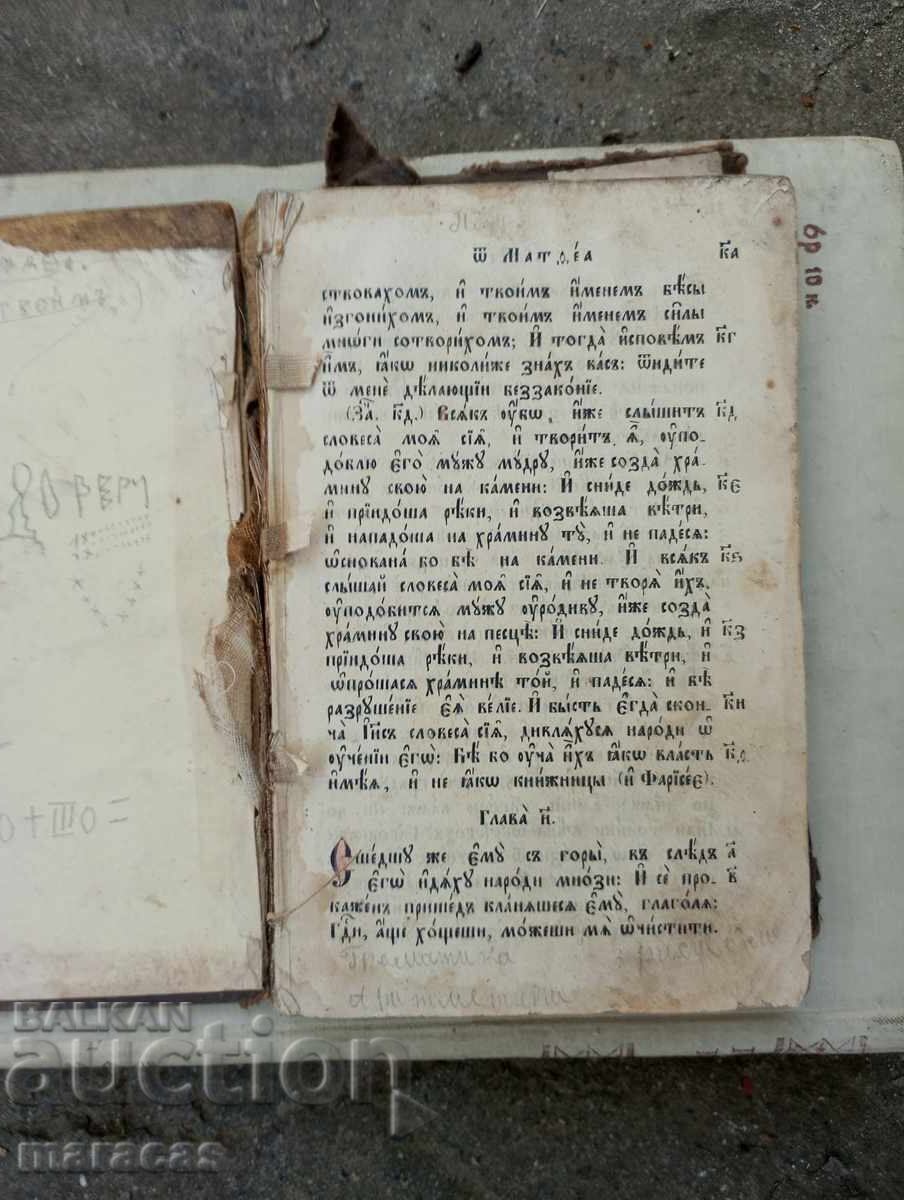 Ѿ Матѳеа к҃а
ствовахомъ, и҆ твои́мъ и҆́менемъ бѣ́сы
и҆згони́хомъ, и҆ твои́мъ и҆́менемъ си̑лы
мнѡ́ги сотвори́хомъ; И҆ тогда̀ и҆сповѣ́мъ к҃г
и҆̀мъ, ꙗ҆́кѡ николи́же зна́хъ ва́съ: ѿиди́те
ѿ менє̀ дѣ́лающїи беззако́нїе.
(За҃. к҃д.) Всѧ́къ ᲂу҆́бѡ, и҆́же слы́шитъ к҃д
словеса̀ моѧ̑ сїѧ̑, и҆ твори́тъ ѧ҆̀, ᲂу҆по-
до́блю є҆го̀ мꙋ́жꙋ мꙋ́дрꙋ, и҆́же созда̀ хра́-
минꙋ свою̀ на ка́мени: И҆ сни́де до́ждь, к҃є
и҆ прїидо́ша рѣ́ки, и҆ возвѣ́ѧша вѣ́три,
и҆ нападо́ша на хра́минꙋ тꙋ̀, и҆ не паде́сѧ:
ѡ҆сно́вана бо бѣ̀ на ка́мени. И҆ всѧ́къ к҃ѕ
слы́шай словеса̀ моѧ̑ сїѧ̑, и҆ не творѧ̀ и҆́хъ,
ᲂу҆подо́битсѧ мꙋ́жꙋ ᲂу҆ро́дивꙋ, и҆́же созда̀
хра́минꙋ свою̀ на песцѣ̀: И҆ сни́де до́ждь, и҆ к҃з
прїидо́ша рѣ́ки, и҆ возвѣ́ѧша вѣ́три, и҆
ѡ҆про́шасѧ хра́минѣ то́й, и҆ паде́сѧ: и҆ бѣ̀
разрꙋше́нїе є҆ѧ̀ ве́лїе. И҆ бы́сть є҆гда̀ скон- к҃и
ча̀ І҆и҃съ словеса̀ сїѧ̑, дивлѧ́хꙋсѧ наро́ди ѡ҆
ᲂу҆че́нїи є҆гѡ̀: Бѣ́ бо ᲂу҆ча̀ и҆̀хъ ꙗ҆́кѡ вла́сть к҃ѳ
и҆мѣ́ѧ, и҆ не ꙗ҆́кѡ кни́жницы (и҆ Фарїсе́є).
Глава̀ и҃.
Сше́дшꙋ же є҆мꙋ̀ съ горы̀, въ слѣ́дъ а҃
є҆гѡ̀ и҆дѧ́хꙋ наро́ди мно́зи: И҆ сѐ про- в҃
каже́нъ прише́дъ кла́нѧшесѧ є҆мꙋ̀, глаго́лѧ:
Гд҇и, а҆́ще хо́щеши, мо́жеши мѧ̀ ѡ҆чи́стити.
Граматика
вр 10 к
=OIII+O
BALKAN
auction
maracas